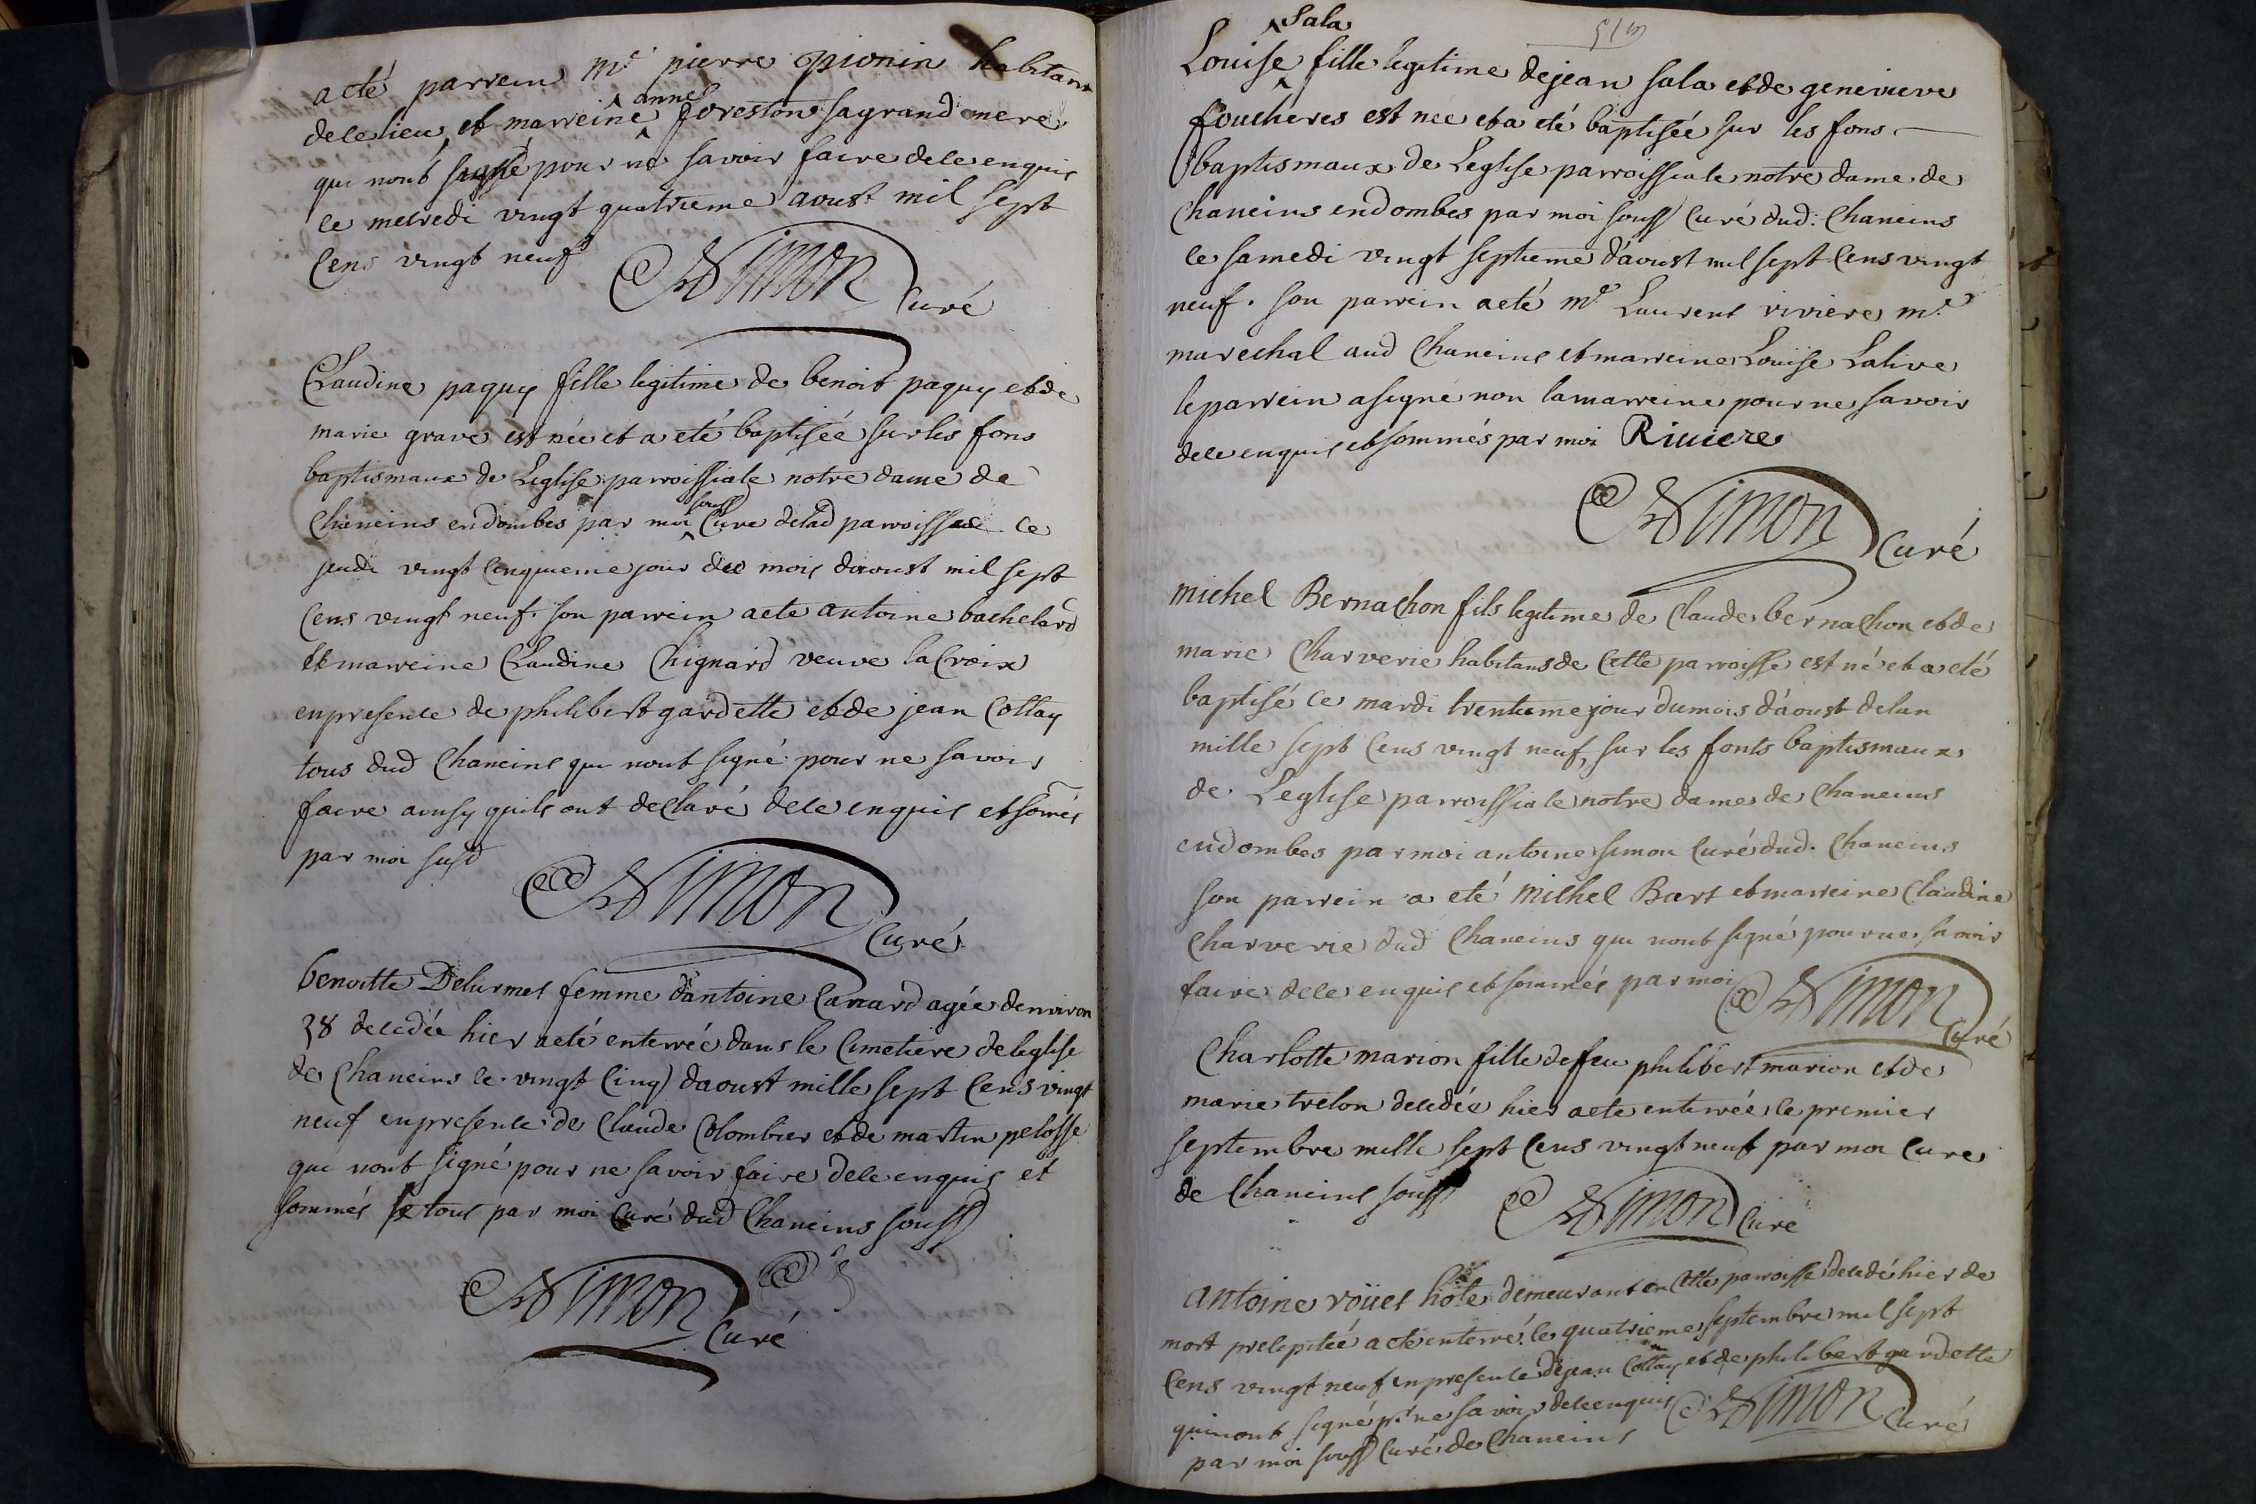 acté parrein Mr pierre pionin habitant
de ce lieu et marreine anne foreston sa grand mere
qui nont signé pour ne savoir faire de ce enquis
ce mecredi vingt quatrieme aoust mil sept
Cens vingt neuf
Simon Curé
Claudine paquy fille legitime de benoit paquy et de
marie grave est née et a eté baptisée sur les fons
baptismaux de Leglise parroissiale notre dame de
Chaneins en dombes par moi souss Curé delad parroisse ce
jeudi vingt Cinquieme jour du mois daoust mil sept
Cens vingt neuf. son parrein a eté antoine bachelard
et marreine Claudine Chignard veuve la Croix
en presence de philibert gardette et de jean Collay
tous dud Chaneins qui nont signé pour ne savoir
faire ainsy quils ont declaré de ce enquis et somés
par moi susd
Simon Curé
benoitte Delurmes femme d'antoine Canard agée denviron
38 decedée hier a eté enterrée dans le Cimetiere de leglise
de Chaneins le vingt Cinq daoust mille sept Cens vingt
neuf en presence de Claude Colombier et de martin pelosse
qui nont signé pour ne savoir faire de ce enquis et
sommés par moi Curé dud Chaneins souss
Simon Curé
Sala
Louise fille legitime de jean sala et de genevieve
foucheres est nee et a eté baptisée sur les fons
baptismaux de Leglise parroissiale notre dame de
Chaneins en dombes par moi souss Curé dud. Chaneins
le samedi vingt septieme d'aoust mil sept Cens vingt
neuf. son parrein a eté Mr Laurent riviere me
marechal aud Chaneins et marreine Louise Lalive
le parrein a signé non la marreine pour ne savoir
de ce enquis et sommés par moi Riuiere
Simon Curé
Michel Bernachon fils legitime de Claude bernachon et de
marie Charverie habitans de Cette parroisse est né et a eté
baptisé ce mardi trentieme jour du mois d'aoust de lan
mille sept Cens vingt neuf, sur les fonts baptismaux
de Leglise parroissiale notre dame de Chaneins
en dombes par moi antoine simon Curé dud. Chaneins
son parrein a eté Michel Bart et marreine Claudine
Charverie dud Chaneins qui nont signé pour ne savoir
faire de ce enquis et sommés par moi Simon
Curé
Charlotte marion fille de feu philibert marion et de
marie trelon decedée hier a ete enterrée le premier
septembre mille sept Cens vingt neuf par moi Cure
de Chaneins souss Simon Cure
antoine roüel hôte demeurant en Cette parroisse decedé hier de
mort precipitée a eté enterré le quatrieme septembre mil sept
Cens vingt neuf en presence de jean Collay et de philibert gardette
qui nont signé pr ne savoir de ce enquis Simon Curé
par moi souss Curé de Chaneins